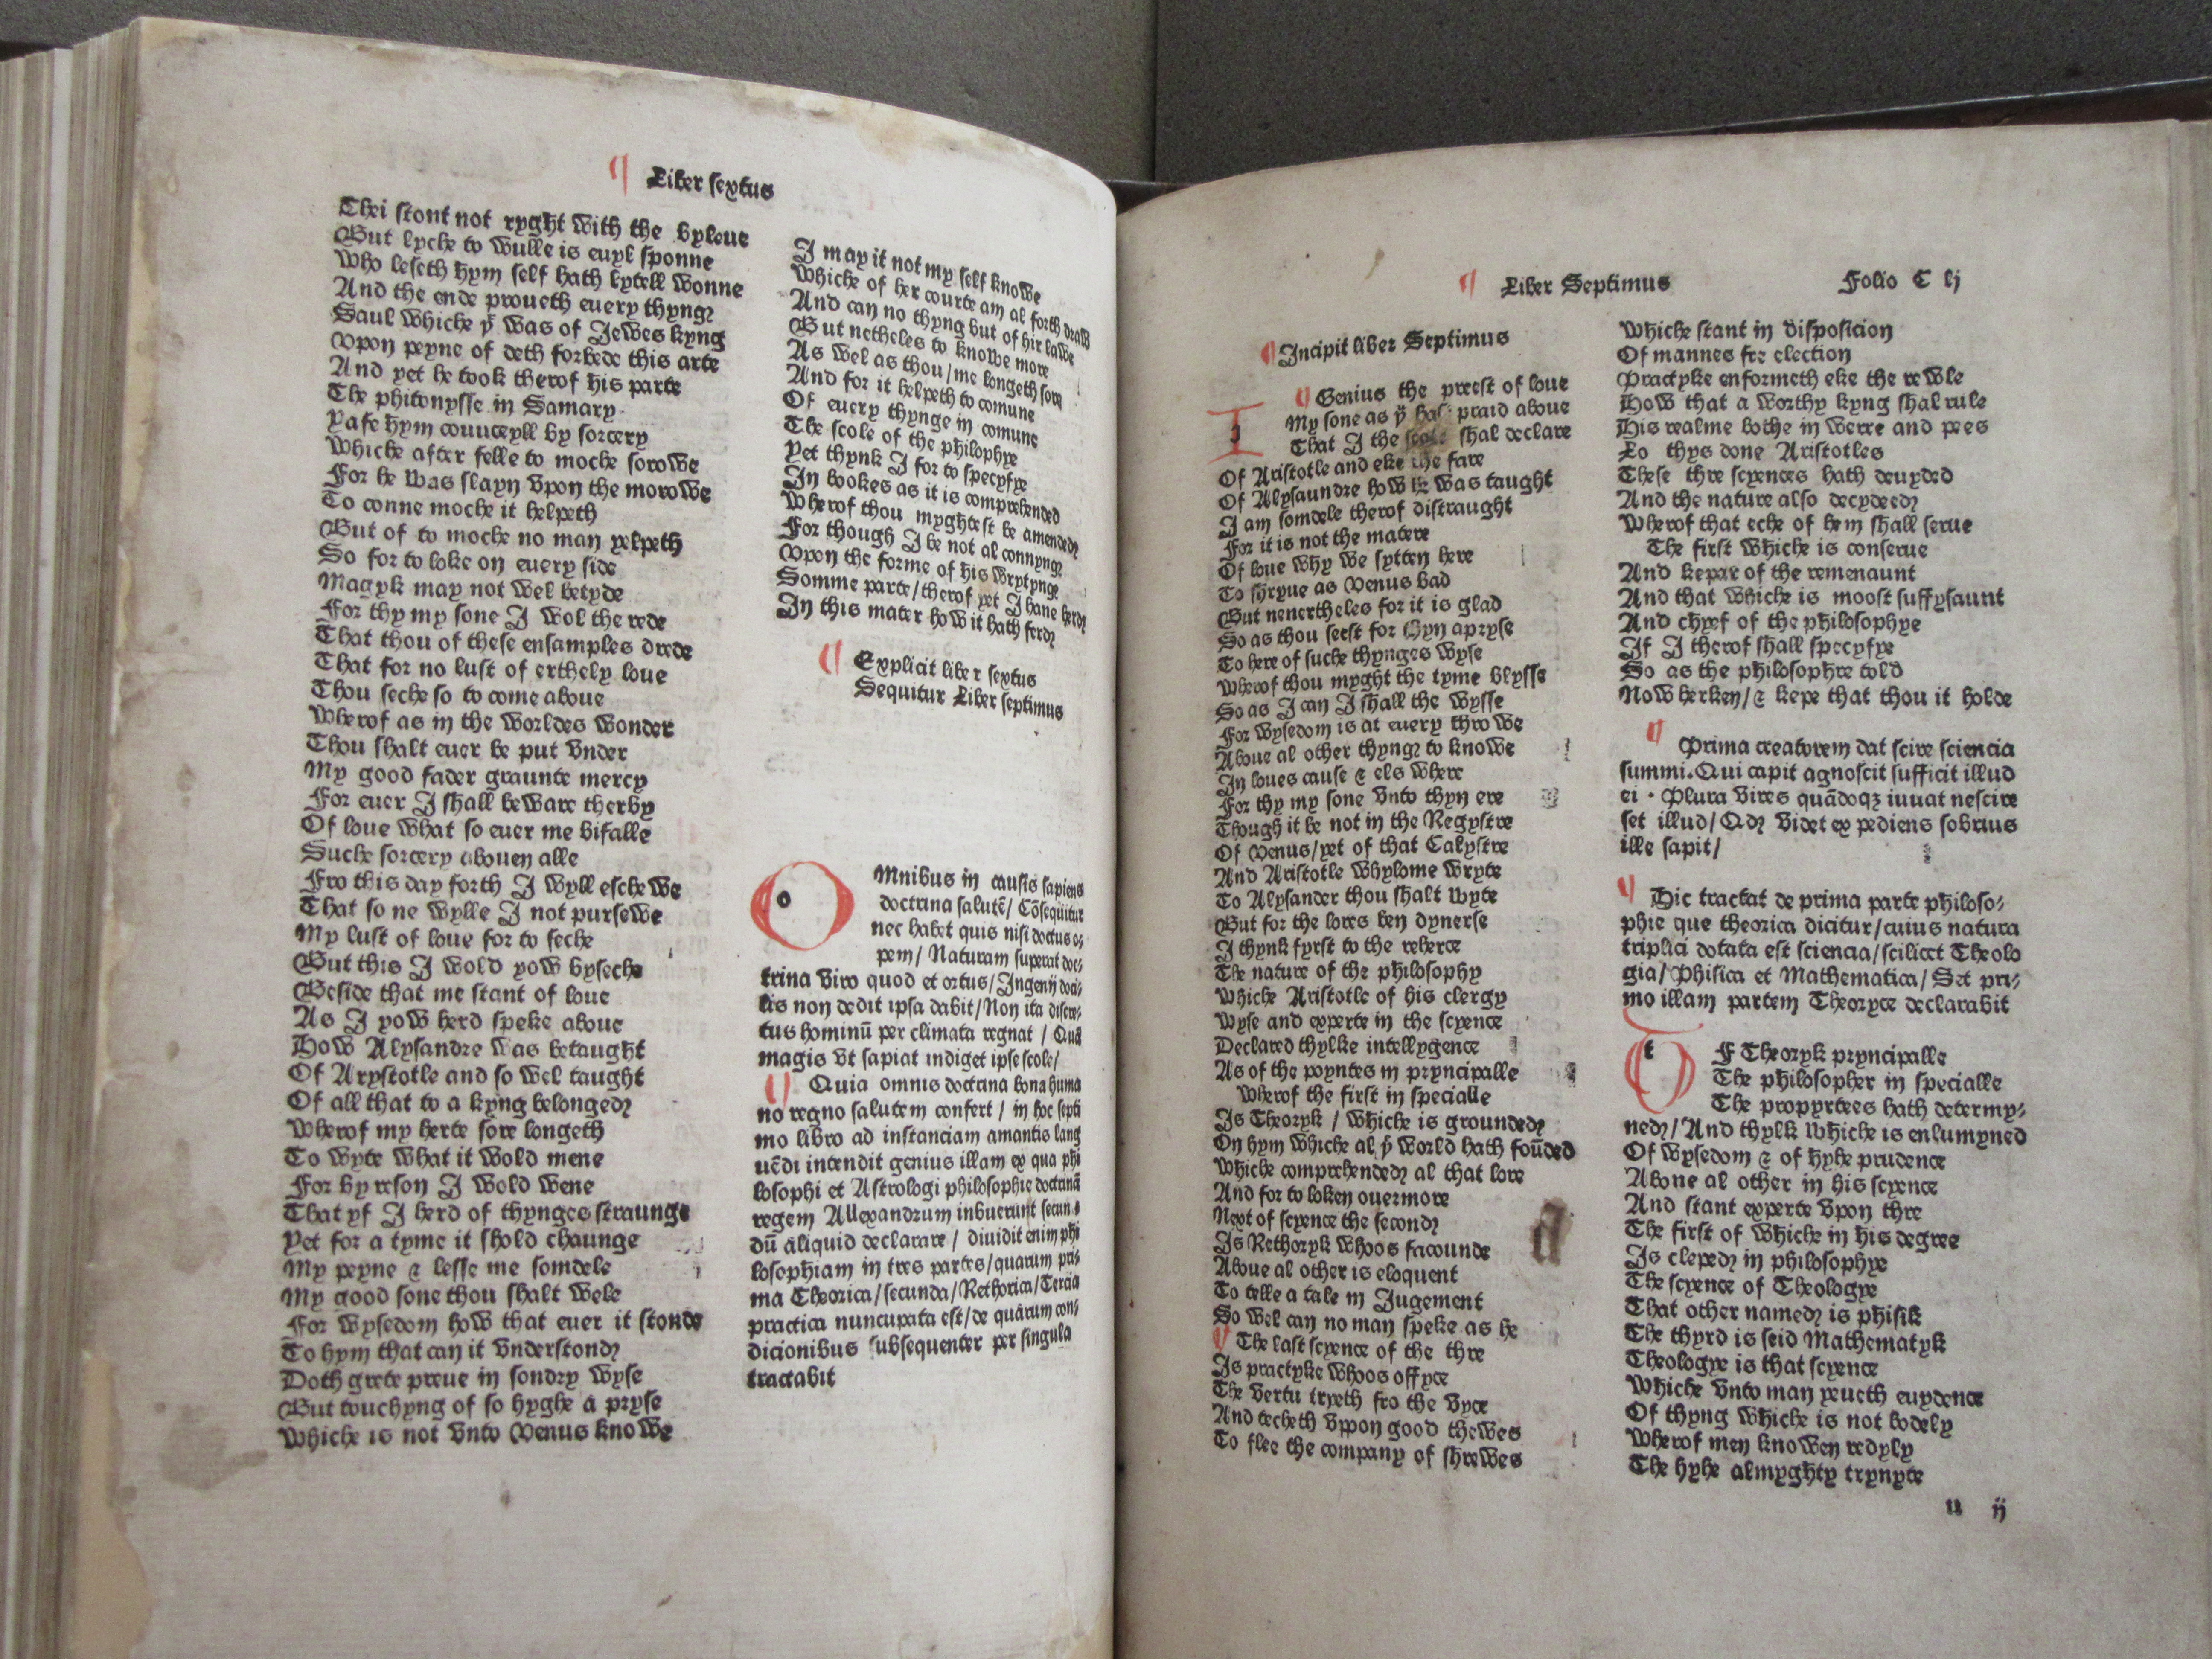 ¶ Liber sextus
Thei stont not ryght with the byleue
But lyche to wulle is euyl sponne
Who leseth hym self hath lytell wonne
And the ende proueth euery thyng
Saul whiche yt was of Jewes kyng
Vpon peyne of deth forbede this arte
And yet he took therof his parte
The phitonysse in Samary
Yafe hym counceyll by sorcery
Whiche after felle to moche sorowe
For he was slayn vpon the morowe
To conne moche it helpeth
But of to moche no man yelpeth
So for to loke on euery side
Magyk may not wel betyde
For thy my sone I wol the rede
That thou of these ensamples drede
That for no lust of erthely loue
Thou seche so to come aboue
Wherof as in the worldes wonder
Thou shalt euer be put vnder
My good fader graunte mercy
For euer I shall beware therby
Of loue what so euer me bifalle
Suche sorcery abouen alle
Fro this day forth I wyll eschewe
That so ne wylle I not pursewe
My lust of loue for to seche
But this I wold yow byseche
Beside that me stant of loue
As I yow herd speke aboue
How Alysandre was betaught
Of Arystotle and so wel taught
Of all that to a kyng belonged
Wherof my herte sore longeth
To wyte what it wold mene
For by reson I wold wene
That yf I herd of thynges straunge
Yet for a tyme it shold chaunge
My peyne & lesse me somdele
My good sone thou shalt wele
For wysedom how that euer it stonde
To hym that can it vnderstond
Doth grete preue in sondry wyse
But touchyng of so hyghe a pryse
Whiche is not vnto Venus knowe
I may it not my self knowe
Whiche of her courte am al forth drawe
And can no thyng but of hir lawe
But netheles to knowe more
As wel as thou/me longeth sore
And for it helpeth to comune
Of euery thynge in comune
The scole of the philophye
Yet thynk I for to specyfye
In bookes as it is comprehended
Wherof thou myghtest be amended
For though I be not al connynge
Vpon the forme of his wrytynge
Somme parte/therof yet I haue herd
In this mater how it hath ferd
¶ Explicit liber sextus
Sequitur Liber septimus
Omnibus in causis sapiens
doctrina salutē/ Cōsequitur
nec habet quis nisi doctus o⸗
pem/ Naturam superat doc⸗
trina viro quod et ortus/Ingenij doci⸗
lis non dedit ipsa dabit/Non ita discre⸗
tus hominū per climata regnat / Quā
magis vt sapiat indiget ipse scole/
¶ Quia omnis doctrina bona huma
no regno salutem confert / in hoc septi
mo libro ad instanciam amantis lang
uēdi intendit genius illam ex qua phi
losophi et Astrologi philosophie doctrinā
regem Allexandrum inbuerunt secun
dū aliquid declarare / diuidit enim phi
losophiam in tres partes/quarum pri⸗
ma Theorica/secunda/Rethorica/Tercia
practica nuncupata est/de quārum con⸗
dicionibus subsequenter per singula
tractabit
¶ Liber Septimus Folio C lj
¶Incipit liber Septimus
¶ Genius the preest of loue
My sone as yt hast praid aboue
That I the scole shal declare
Of Aristotle and eke the fare
Of Alysaundre how he was taught
I am somdele therof distraught
For it is not the matere
Of loue why we sytten here
To shryue as Venus bad
But neuertheles for it is glad
So as thou seest for thyn apryse
To here of suche thynges wyse
Wherof thou myght the tyme blysse
So as I can I shall the wysse
For wysedom is at euery throwe
Aboue al other thyng to knowe
In loues cause & els where
For thy my sone vnto thyn ere
Though it be not in the Regystre
Of Venus/yet of that Calystre
And Aristotle whylome wryte
To Alysander thou shalt wyte
But for the lores ben dyuerse
I thynk fyrst to the reherce
The nature of the philosophy
Whiche Aristotle of his clergy
Wyse and experte in the scyence
Declared thylke intellygence
As of the poyntes in pryncipalle
Wherof the first in specialle
Is Theoryk / whiche is grounded
On hym whiche al yt world hath foūded
Whiche comprehended al that lore
And for to loken ouermore
Next of scyence the second
Is Rethoryk whoos facounde
Aboue al other is eloquent
To telle a tale in Jugement
So wel can no man speke as he
¶ The last scyence of the thre
Is practyke whoos offyce
The vertu tryeth fro the vyce
And techeth vpon good thewes
To flee the company of shrewes
Whiche stant in disposicion
Of mannes fre election
Practyke enformeth eke the rewle
How that a worthy kyng shal rule
His realme bothe in werre and pees
Lo thys done Aristotles
These thre scyences hath deuyded
And the nature also decydeed
Wherof that eche of hem shall serue
The first whiche is conserue
And kepar of the remenaunt
And that whiche is moost suffysaunt
And chyef of the philosophye
If I therof shall specyfye
So as the philosophre told
Now herken/& kepe that thou it holde
¶ Prima creatorem dat scire sciencia
summi. Qui capit agnoscit sufficit illud
ei . Plura vires quādoqꝫ iuuat nescire
set illud/ Qdꝫ videt expediens sobrius
ille sapit/
¶ Hic tractat de prima parte philoso⸗
phie que theorica dicitur/cuius natura
triplici dotata est sciencia/scilicet Theolo
gia/ Phisica et Mathematica/ Set pri⸗
mo illam partem Theoryce declarabit
OF Theoryk pryncipalle
The philosopher in specialle
The propyrtees hath determy⸗
ned/ And thylk whiche is enlumyned
Of wysedom & of hyhe prudence
Aboue al other in his scyence
And stant experte vpon thre
The first of whiche in his degree
Is cleped in philosophye
The scyence of Theologye
That other named is phisik
The thyrd is seid Mathematyk
Theologye is that scyence
Whiche vnto man yeueth euydence
Of thyng whiche is not bodely
Wherof men knowen redyly
The hyhe almyghty trynyte
u ij